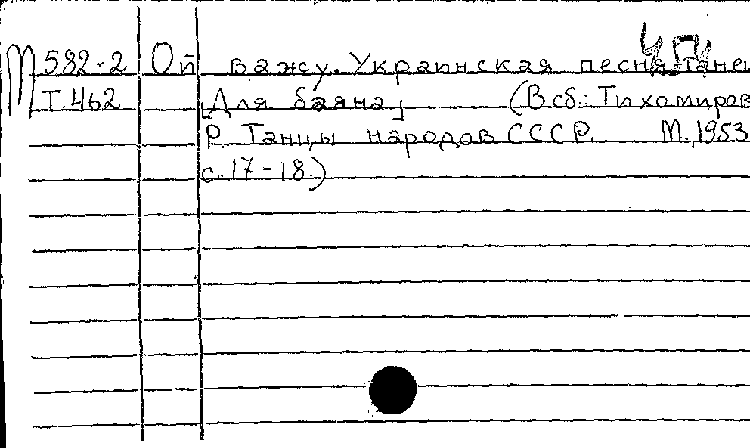 М 582-2 Оп важу. Украинская песня-танец
Т 462 [Для баяна] (В сб.: Тихомиров
Р. Танцы народов СССР. М., 1953
с. 17-18)